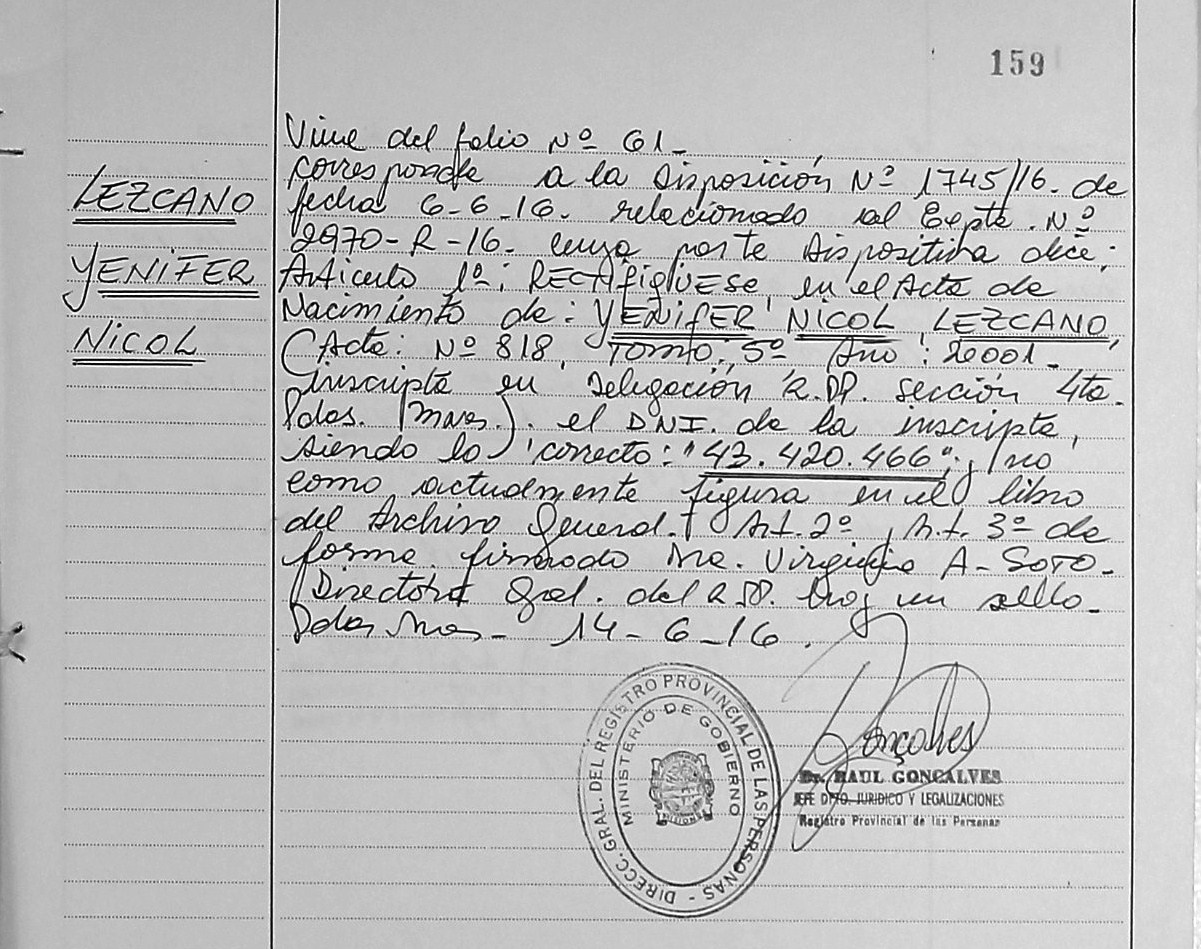 159
LEZCANO
YENIFER
NICOL
Viene del folio Nº 61-
corresponde a la Disposición Nº 1745/16. de
fecha 6-6-16. relacionado al Expte. Nº
2970-R-16- cuya parte dispositiva dice;
Articulo 1º: RECTIFIQUESE, en el Acta de
Nacimiento de: YENIFER NICOL LEZCANO,
(Acta: Nº 818, TOMO: 5º Año: 20001-
inscripta en Delegación R.PP. sección 4ta.
Pdas. Mnes.). el DNI. de la inscripta,
siendo lo correcto: "43.420.466"; y no
como actualmente figura en el libro
del Archivo General. Art. 2º, Art. 3º de
forma. firmado Dra. Virginia A- SOTO-
Directora Gral. del R.PP. hay un sello-
Pdas Mnes- 14-6-16.
DIRECC. GRAL. DEL REGISTRO PROVINCIAL DE LAS PERSONAS -
MINISTERIO DE GOBIERNO
MISIONES
Gonçalves
Dr. RAUL GONCALVES
JEFE DPTO. JURIDICO Y LEGALIZACIONES
Registro Provincial de las Personas